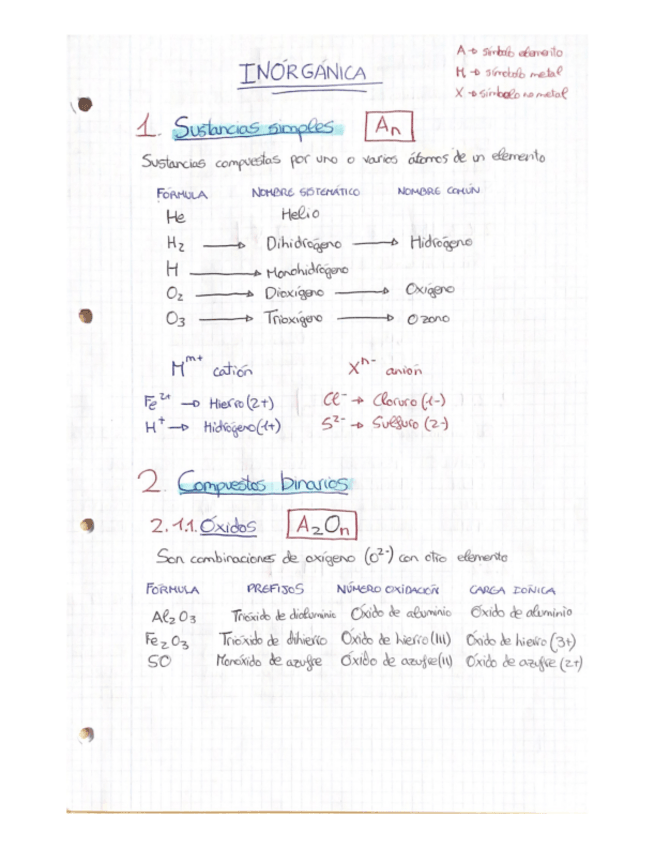 A → símbolo elemento
INORGÁNICA
M → símbolo metal
X → símbolo no metal
1. Sustancias simples An
Sustancias compuestas por uno o varios átomos de un elemento
FÓRMULA NOMBRE SISTEMÁTICO NOMBRE COMÚN
He Helio
H2 → Dihidrógeno → Hidrógeno
H → Monohidrógeno
O2 → Dioxígeno → Oxígeno
O3 → Trioxígeno → Ozono
M^m+ catión X^n- anión
Fe^2+ → Hierro (2+) Cl^- → Cloruro (1-)
H^+ → Hidrógeno (1+) S^2- → Sulfuro (2-)
2. Compuestos binarios
2.1.1. Óxidos A2On
Son combinaciones de oxígeno (O^2-) con otro elemento
FÓRMULA PREFIJOS NÚMERO OXIDACIÓN CARGA IÓNICA
Al2O3 Trióxido de dialuminio Óxido de aluminio Óxido de aluminio
Fe2O3 Trióxido de dihierro Óxido de hierro (III) Óxido de hierro (3+)
SO Monóxido de azufre Óxido de azufre (II) Óxido de azufre (2+)